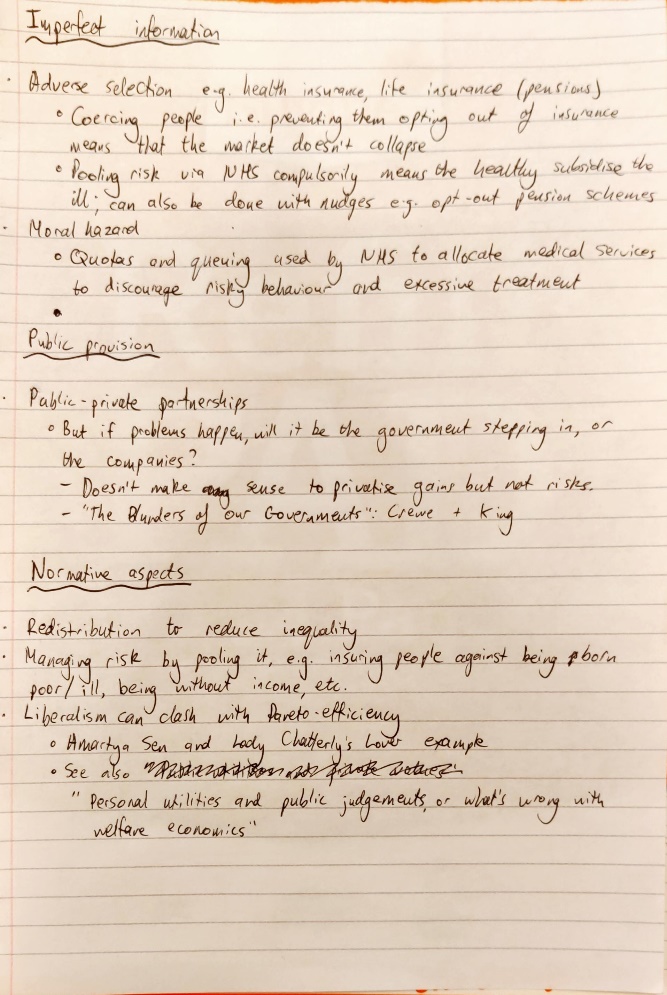 Imperfect information
· Adverse selection e.g. health insurance, life insurance (pensions)
∘ Coercing people i.e. preventing them opting out of insurance
means that the market doesn't collapse
∘ Pooling risk via NHS compulsorily means the healthy subsidise the
ill; can also be done with nudges e.g. opt-out pension schemes
· Moral hazard
∘ Quotas and queuing used by NHS to allocate medical services
to discourage risky behaviour and excessive treatment
•
Public provision
· Public-private partnerships
∘ But if problems happen, will it be the government stepping in, or
the companies?
- Doesn't make sense to privatise gains but not risks.
- "The Blunders of our Governments": Crewe + King
Normative aspects
· Redistribution to reduce inequality
· Managing risk by pooling it, e.g. insuring people against being born
poor/ill, being without income, etc.
· Liberalism can clash with Pareto-efficiency
∘ Amartya Sen and Lady Chatterly's Lover example
∘ See also
"Personal utilities and public judgements, or what's wrong with
welfare economics"